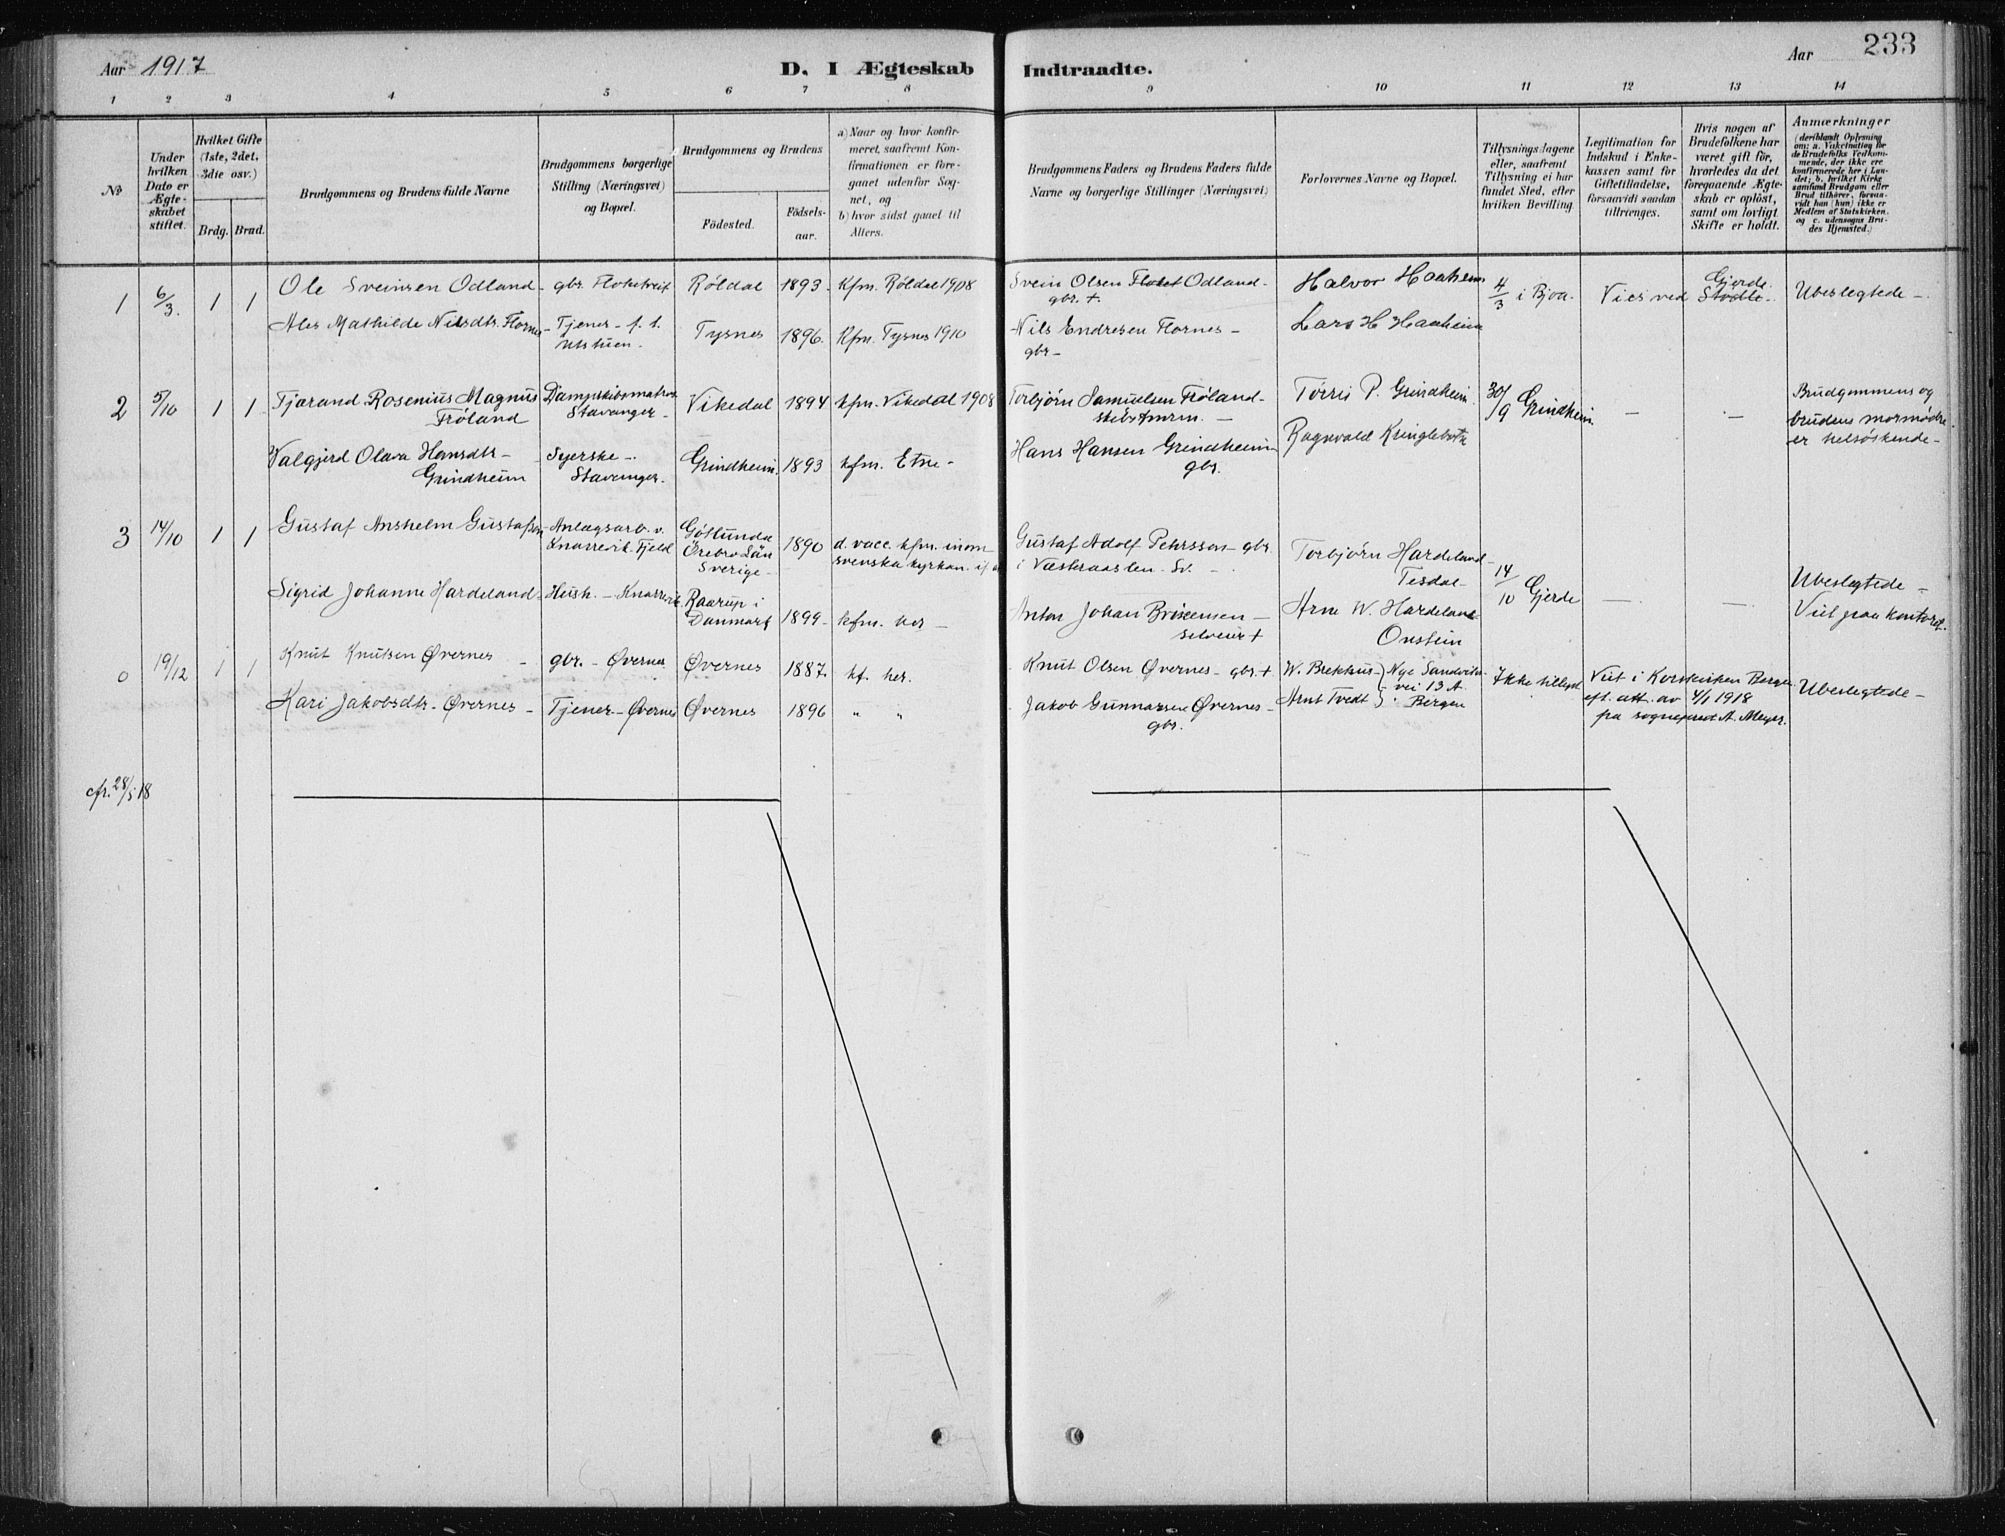 Aar 1917
D. I Ægteskab Indtraadte.
Aar
233
1 2 3 4 5 6 7 8 9 10 11 12 13 14
No
Under hvilken Dato er Ægteskabet stiftet.
Hvilket Gifte (1ste, 2det, 3die osv.)
Brdg. Brud.
Brudgommens og Brudens fulde Navne
Brudgommens borgerlige Stilling (Næringsvei) og Bopæl.
Brudgommens og Brudens
Födested.
Födsels-aar.
a) Naar og hvor konfirmeret, saafremt Konfirmationen er foregaaet udenfor Sognet, og
b) hvor sidst gaaet til Alters.
Brudgommens Faders og Brudens Faders fulde Navne og borgerlige Stillinger (Næringsvei)
Forlovernes Navne og Bopæl.
Tillysningsdagene eller, saafremt Tillysning ei har fundet Sted, efter hvilken Bevilling
Legitimation for Indskud i Enkekassen samt for Giftetilladelse, forsaavidt saadan tiltrænges.
Hvis nogen af Brudefolkene har været gift før, hvorledes da det foregaaende Ægteskab er oplöst, samt om lovligt Skifte er holdt.
Anmærkninger
(deriblandt Oplysning om: a. Vakcination for de Brudefolks Vedkommende, der ikke ere konfirmerede her i Landet; b. hvilket Kirkesamfund Brudgom eller Brud tilhörer, forsaavidt han (hun) ikke er Medlem af Statskirken. og c. udensogns Brudes Hjemsted.)
1 6/3. 1 1 Ole Sveinsen Odland gbr. Röldal 1893. Kfm. Röldal 1908 Svein Olsen Odland gbr. + Halvor Haaheim 4/3 i Bjoa. Vies ved Gjerde Ubeslegtede -.
Mathilde Nilsdtr. Flornes Tjener Tysnes 1896. Kfm. Tysnes 1910 Nils Endresen Flornes gbr - Lars H. Haaheim
2 5/10 1 1 Tjærand Rosenius Magnus Fröland Dampskibsmatros Stavanger Vikedal 1894 kfm. Vikedal 1908 Torbjørn Samuelsen Fröland Tørris P. Grindheim 30/9 Grindheim - - Brudgommens og brudens mormødre er helsöskende -
Valgjerd Olava Hansdtr Grindheim Syerske - Stavanger. Grindheim. 1893 kfm. Etne - Hans Hansen Grindheim gbr. Ragnvald Kringlebotn
3 14/10 1 1 Gustaf Anshelm Gustafsson Anlægsarb. v. Knarrevik Fjeld Götlunda Örebro Län Sverige 1890 d. vacc. kfm. inom svenska kyrkan. Gustaf Adolf Pehrsson gbr. i Torbjørn Hardeland Tesdal 14/10 Gjerde - - Ubeslegtede - Viet paa kontoret.
Sigrid Johanne Hardeland Hush. - Knarrevik Raarup i Danmark 1899 kfm. her - Anton Johan + Arne W. Hardeland
0 19/12 1 1 Knut Knutsen Øvernes gbr. - Øvernes Øvernes 1887. kf. her. Knut Olsen Øvernes - gbr + W. Brekhus Nye Sandviksvei 13 A. Bergen Ikke tillyst Viet i Korskirken Bergen eft. att. av 4/1 1918 fra sogneprest A. Meyer. Ubeslegtede -
Kari Jakobsdtr. Øvernes - Tjener - Øvernes Øvernes 1896 " " Jakob Gunnarsen Øvernes gbr. Arnt Tvedt
cfr. 28/5 18